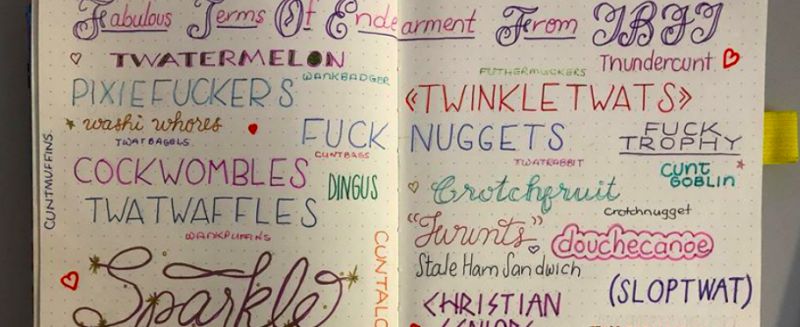 Fabulous Terms Of Endearment From IBJJ
TWATERMELON
WANKBADGER
FUTHERMUCKERS
Thundercunt
PIXIEFUCKERS
«TWINKLETWATS»
washi whores
TWATBAGELS
FUCK NUGGETS
FUCK TROPHY
CUNTBAGS
TWATRABBIT
CUNTMUFFINS
COCKWOMBLES
DINGUS
Crotchfruit
CUNT
GOBLIN
TWATWAFFLES
crotchnugget
WANKPUFFINS
"Twunts"
douchecanoe
Stale Ham Sandwich
Sparkle
(SLOPTWAT)
CHRISTIAN
SENIORS